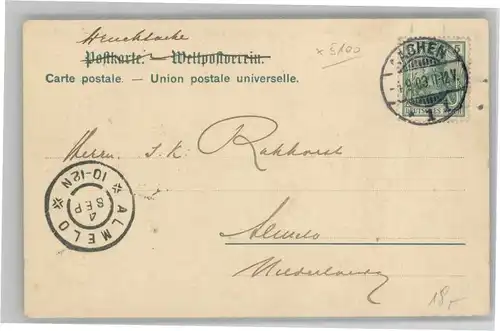 Drucksache
Postkarte. — Weltpostverein.
Carte postale. — Union postale universelle.
x 5100
5
AACHEN
9.03 11-12 V.
1
Herrn. J. K. Rakhorst
ALMELO
4
SEP
10-12N
Almelo
Niederlande
18,-